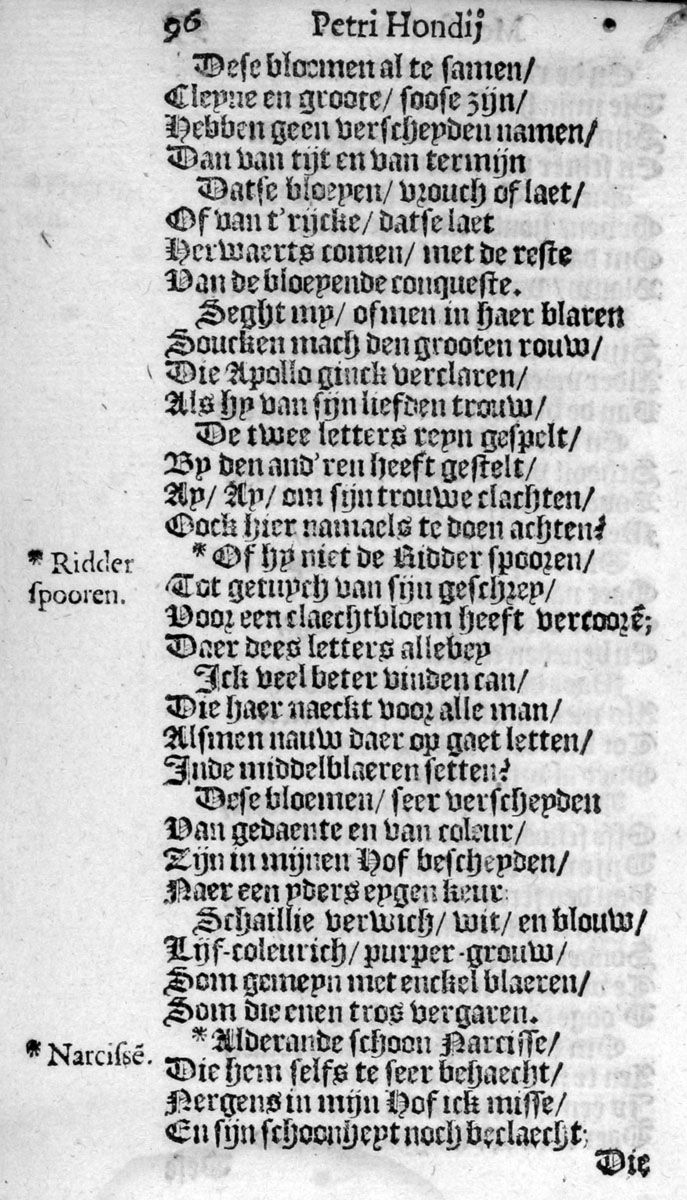 96 Petri Hondij
Dese bloemen al te samen/
Cleyne en groote/ soose zijn/
Hebben geen verscheyden namen/
Dan van tijt en van termijn
Datse bloeyen/ vrouch of laet/
Of van t'rijcke/ datse laet
Herwaerts comen/ met de reste
Van de bloeyende conqueste.
Seght my/ ofmen in haer blaren
Soucken mach den grooten rouw/
Die Apollo ginck verclaren/
Als hy van sijn liefden trouw/
De twee letters reyn gespelt/
By den and'ren heeft gestelt/
Ay/ Ay/ om sijn trouwe clachten/
Oock hier namaels te doen achten?
* Ridder spooren.
* Of hy niet de Ridder spooren/
Tot getuych van sijn geschrey/
Voor een claechtbloem heeft vercoorẽ;
Daer dees letters allebey
Ick veel beter vinden can/
Die haer naeckt voor alle man/
Alsmen nauw daer op gaet letten/
Inde middelblaeren setten?
Dese bloemen/ seer verscheyden
Van gedaente en van coleur/
Zijn in mijnen Hof bescheyden/
Naer een yders eygen keur:
Schaillie verwich/ wit/ en blouw/
Lijf-coleurich/ purper-grouw/
Som gemeyn met enckel blaeren/
Som die eenen tros vergaren.
* Narcissẽ.
* Alderande schoon Narcisse/
Die hem selfs te seer behaecht/
Nergens in mijn Hof ick misse/
En sijn schoonheyt noch beclaecht;
Die